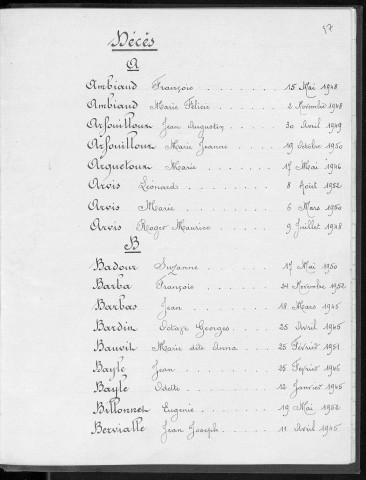 87
Décès
A
Ambiaud François . . . . . . . 15 Mai 1948
Ambiaud Marie Félicie . . . . . 2 Novembre 1948
Arfouilloux Jean Augustin . . . . . 30 Avril 1949
Arfouilloux Marie Jeanne . . . . . 19 Octobre 1950
Arquetoux Marie . . . . . . . 17 Mai 1946
Arvis Léonard . . . . . . . 8 Août 1952
Arvis Marie . . . . . . . 6 Mars 1950
Arvis Roger Maurice . . . . . 9 Juillet 1948
B
Badour Suzanne . . . . . . . 17 Mai 1950
Barba François . . . . . . . 24 Novembre 1952
Barbas Jean . . . . . . . 18 Mars 1945
Bardin Octave Georges . . . . . 25 Avril 1945
Bauvit Marie dite Anna . . . . . 25 Février 1951
Bayle Jean . . . . . . . 25 Février 1946
Bayle Odette . . . . . . . 12 Janvier 1945
Billonnet Eugénie . . . . . . . 19 Mai 1952
Bervialle Jean Joseph . . . . . 11 Avril 1945